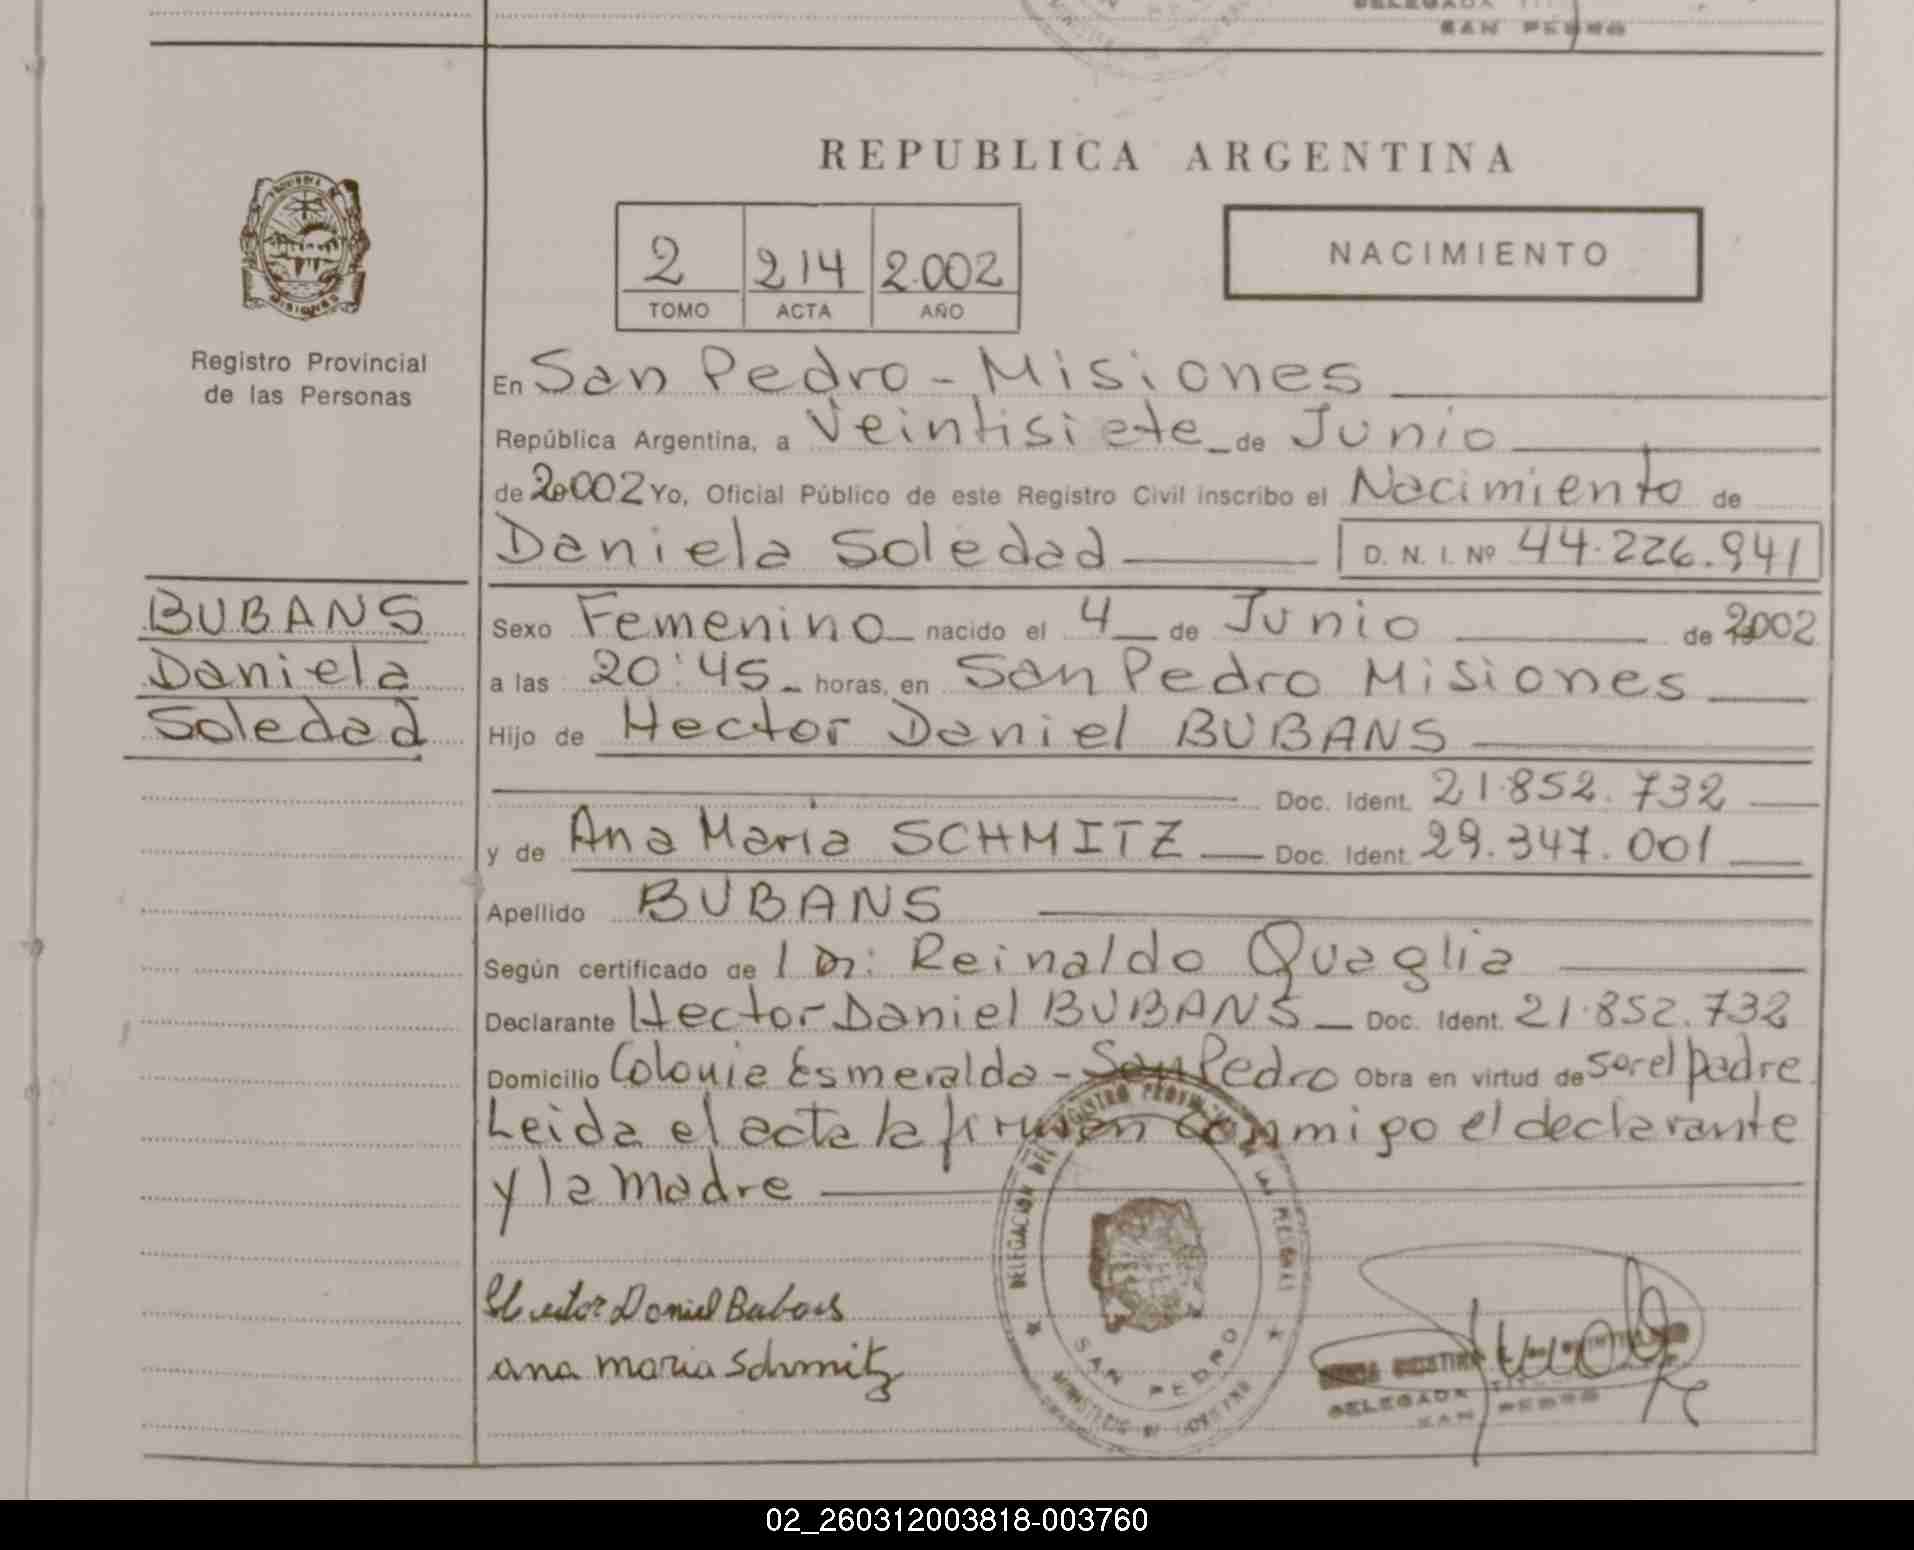 SAN PEDRO
REPUBLICA ARGENTINA
MISIONES
2 214 2.002
TOMO ACTA AÑO
NACIMIENTO
Registro Provincial
de las Personas
En San Pedro - Misiones
República Argentina, a Veintisiete de Junio
de 2002 Yo, Oficial Público de este Registro Civil inscribo el Nacimiento de
Daniela Soledad D. N. I. Nº 44.226.941
BUBANS
Daniela
Soledad
Sexo Femenino nacido el 4 de Junio de 2002
a las 20:45 horas, en San Pedro Misiones
Hijo de Hector Daniel BUBANS
Doc. Ident. 21.852.732
y de Ana Maria SCHMITZ Doc. Ident. 29.347.001
Apellido BUBANS
Según certificado de Dr: Reinaldo Quaglia
Declarante Hector Daniel BUBANS Doc. Ident. 21.852.732
Domicilio Colonia Esmeralda - San Pedro Obra en virtud de ser el padre
Leida el acta la firman conmigo el declarante
y la madre
Hector Daniel Bubans
ana maria Schmitz
DELEGACION DEL REGISTRO PROVINCIAL DE LAS PERSONAS
SAN PEDRO
MINISTERIO DE GOBIERNO
DELEGADA
SAN PEDRO
02_260312003818-003760